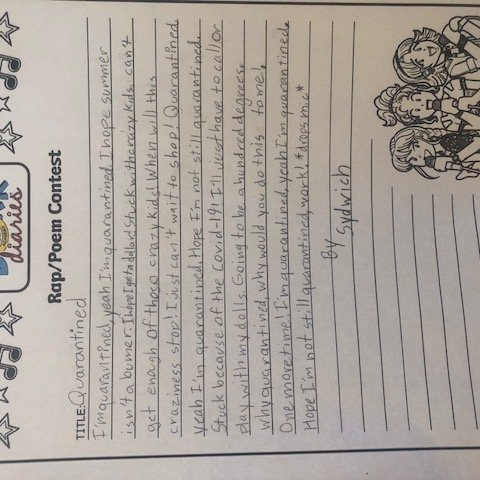 DORK
diaries
Rap/Poem Contest
TITLE: Quarantined
I'm quarantined, yeah I'm quarantined. I hope summer
isn't a bumer. I hope I get add and Stuck with crazy kids. can't
get enough Of those crazy kids! When will this
craziness stop! I just can't wait to shop! Quarantined
yeah I'm quarantined. Hope I'm not still quarantined.
Stuck because of the Covid-19! I'll just have to call or
play with my dolls. Going to be a hundred degrees.
why quarantined, why would you do this to me!
One more time! I'm quarantined, yeah I'm quarantined.
Hope I'm not still quarantined, work! *drops mic*
By
Sydwich